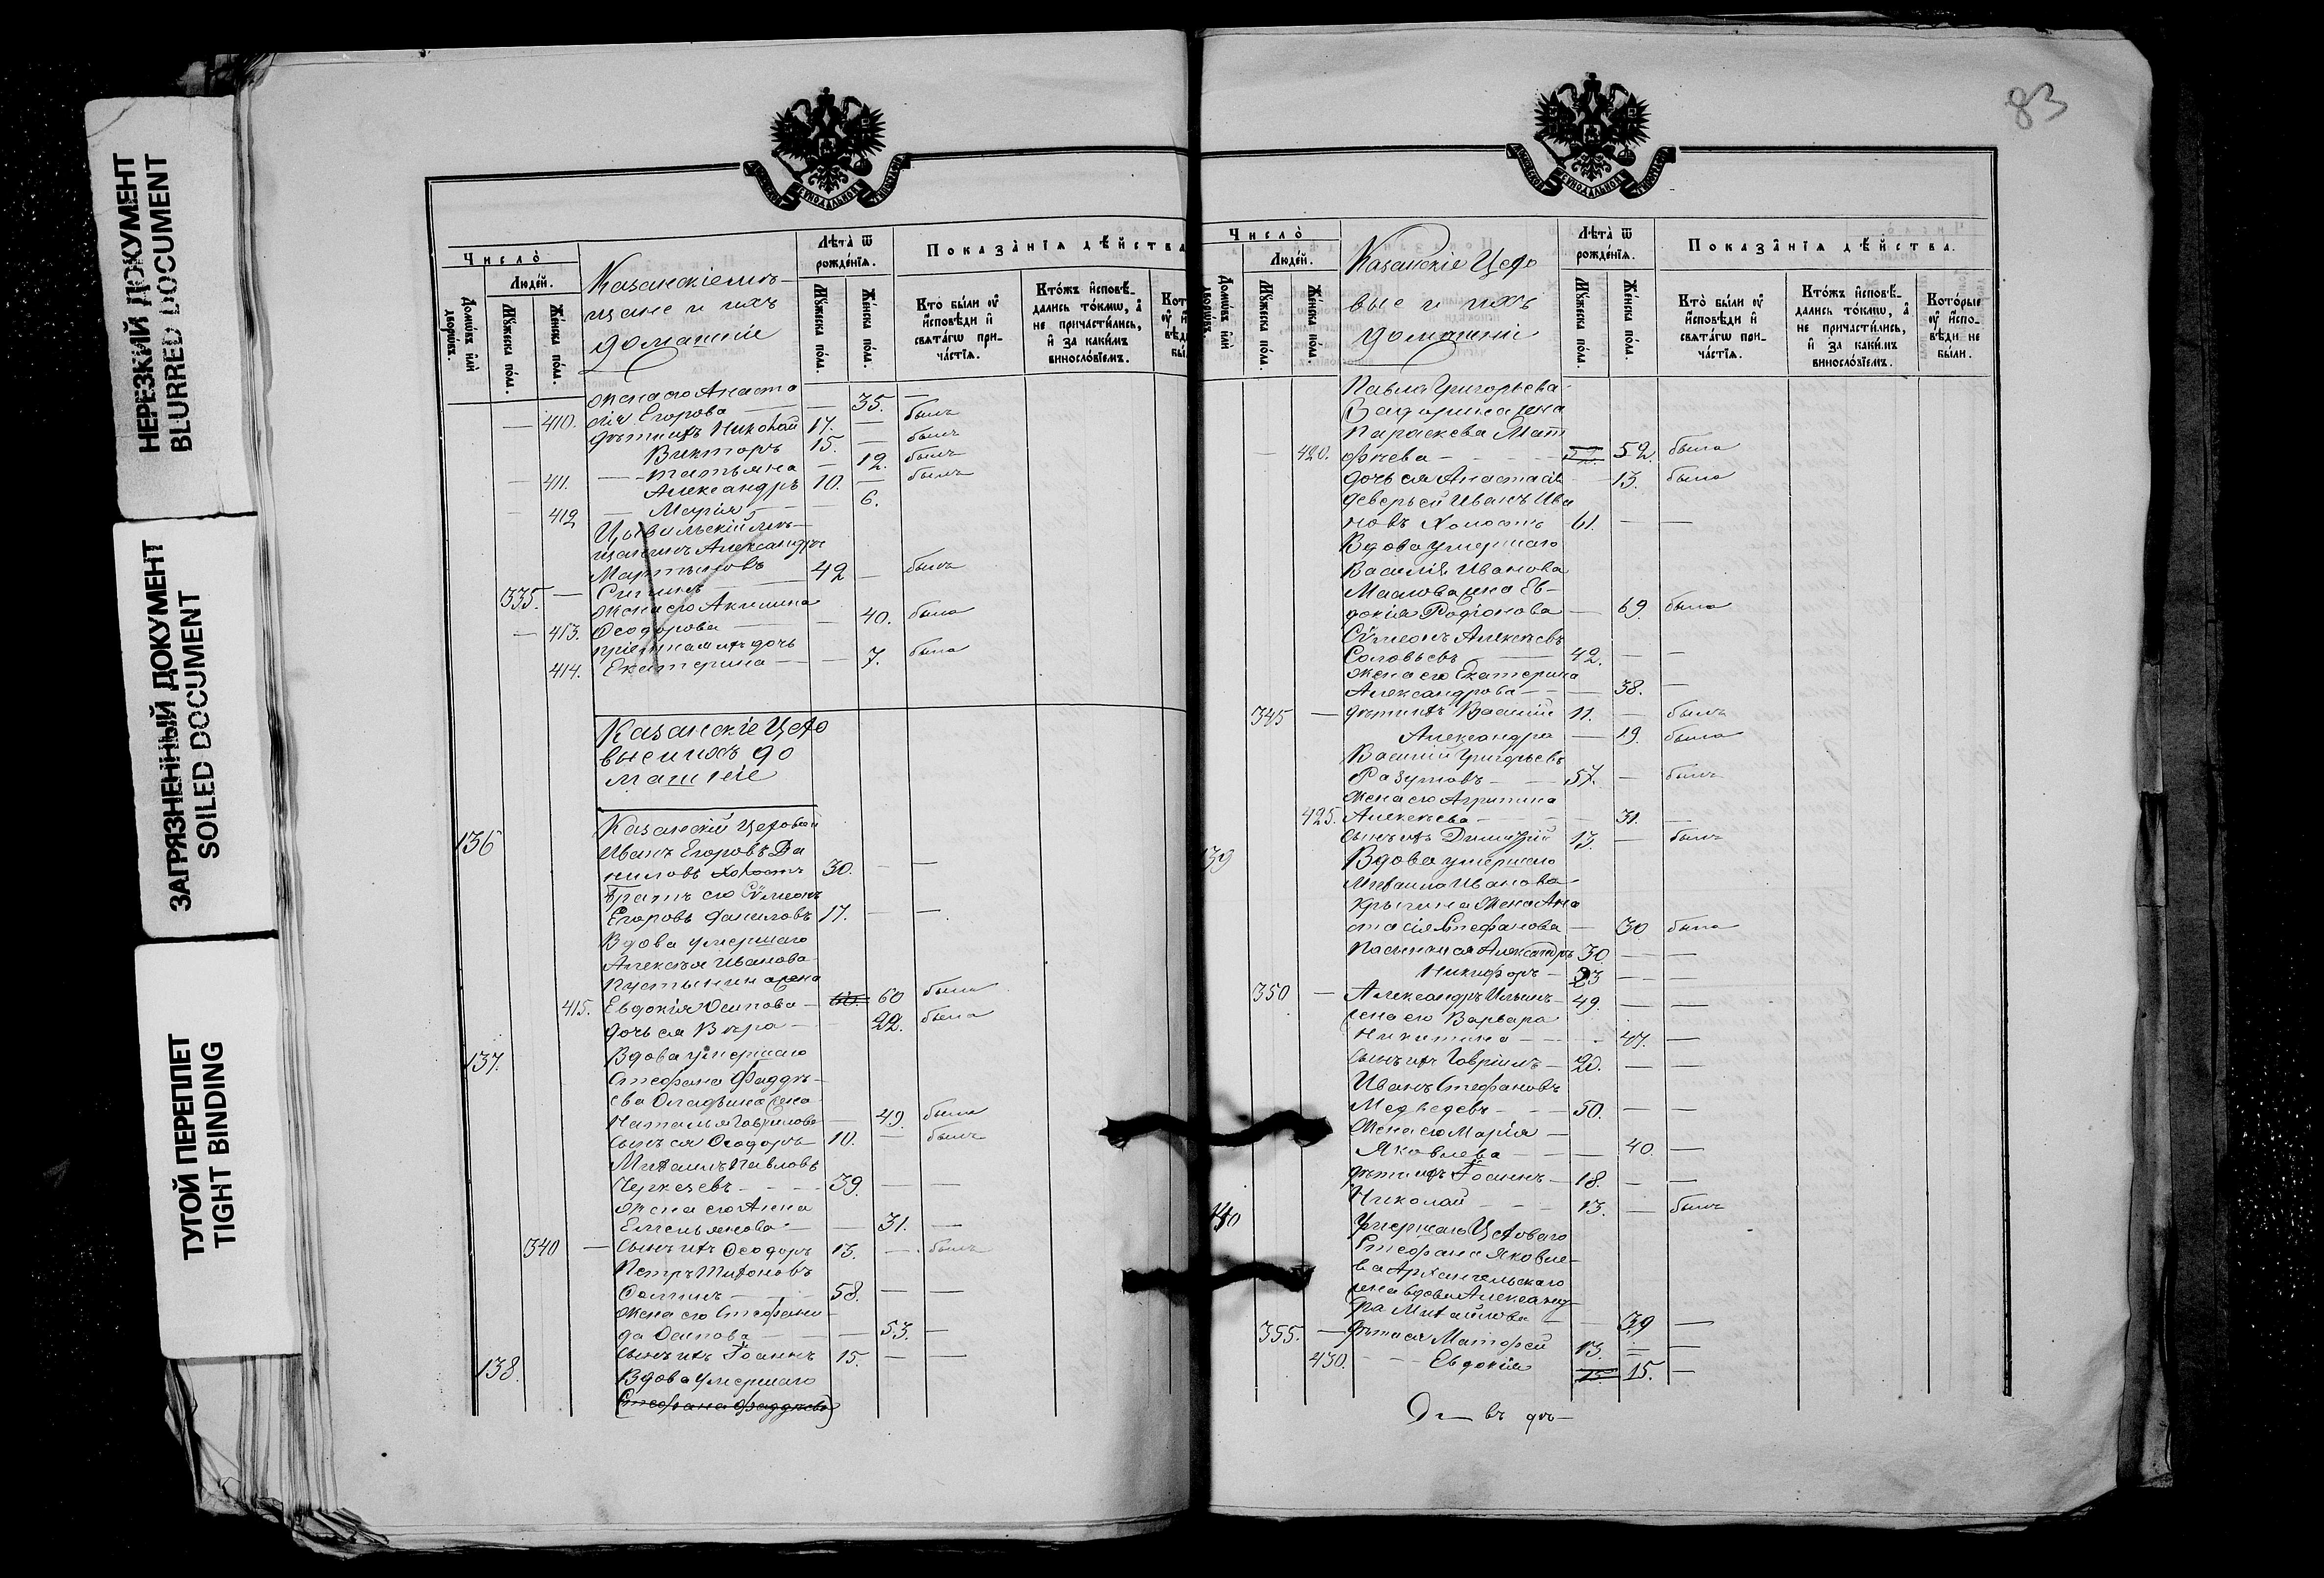 НЕРЕЗКИЙ ДОКУМЕНТ
BLURRED DOCUMENT
ЗАГРЯЗНЕННЫЙ ДОКУМЕНТ
SOILED DOCUMENT
ТУГОЙ ПЕРЕПЛЕТ
TIGHT BINDING
Число̀
Домѡ́въ и҆лѝ дворѡ́въ.
Люде́й.
Мꙋ́жеска по́ла.
Же́нска по́ла.
Казанскіе мѣ-
щане и ихъ
домашніе
Лѣ́та ѿ рожде́нїѧ.
Мꙋ́жеска по́ла.
Же́нска по́ла.
Показа̑нїѧ дѣ́йства
Кто̀ бы́ли ᲂу҆ и҆́сповѣди и҆ свѧта́гѡ при-
ча́стїѧ.
Кто́жъ и҆сповѣ́-
дались то́кмѡ, а҆
не причасти́лись,
и҆ за каки́мъ
виносло́вїемъ.
жена его Анаста
410. сія Егорова — — 35. —
дѣти ихъ Николай 17. — былъ
Викторъ 15. — былъ
411. — Татьяна — 12. былъ
Александръ 10. — былъ
412 — Марія — — 6.
Цывильскій мѣ-
щанинъ Александръ
Мартыновъ
335. — 42 — былъ
жена его Акилина
413. Ѳеодорова — — 40. была
пріемная ихъ дочь
414. Екатерина — — 7. была
Казанскіе Цехо
вые и ихъ до
машніе
136 Казанскій Цеховой
Иванъ Егоровъ Да
ниловъ холостъ 30. — —
Братъ его Сѵмеонъ
Егоровъ Даниловъ 17. — —
Вдова умершаго
Алексѣя Иванова
415. Евдокія Осипова — 60 была
дочь ея Вѣра — 22. была
137. Вдова умершаго
Стефана Фаддѣ-
ева жена
Наталья Гаврилова — 49. была
сынъ ея Ѳеодоръ 10. — былъ
Михаилъ Павловъ
39. — —
жена его Анна
Емельянова — — 31. —
340 — сынъ ихъ Ѳеодоръ 13. — былъ
Петръ Тихоновъ
58. — —
жена его Стефани-
да Осипова — — 53. —
сынъ ихъ Іоаннъ 15. — —
138. Вдова умершаго
(Стефана Фаддѣева)
83
Число̀
Домѡ́въ и҆лѝ дворѡ́въ.
Люде́й.
Мꙋ́жеска по́ла.
Же́нска по́ла.
Казанскіе Цехо
вые и ихъ
домашніе
Лѣ́та ѿ рожде́нїѧ.
Мꙋ́жеска по́ла.
Же́нска по́ла.
Показа̑нїѧ дѣ́йства.
Кто̀ бы́ли ᲂу҆ и҆́сповѣди и҆ свѧта́гѡ при-
ча́стїѧ.
Кто́жъ и҆сповѣ́-
дались то́кмѡ, а҆
не причасти́лись,
и҆ за каки́мъ
виносло́вїемъ.
Кото́рые
ᲂу҆ и҆́спо-
вѣди не
бы́ли.
Павла Григорьева
жена
Параскева Мат
420. фѣева — 52. была
дочь ея Анастасія — 13. была
деверь ей Иванъ Ива
новъ холостъ 61. — —
Вдова умершаго
Василія Иванова
Маслова жена Ев-
докія Родіонова — 69. была
Сѵмеонъ Алексѣевъ
Соловьевъ — 42. — —
жена его Екатерина
Александрова — — 38. —
345 — дѣти ихъ Василій 11. — былъ
Александра — 19. была
Василій Григорьевъ
Разумовъ — 57. — былъ
жена его Агрипина
425. Алексѣева — 31. —
сынъ ихъ Димитрій 13. — былъ
139 Вдова умершаго
Михаила Иванова
жена Ана
стасія Стефанова — 30 была
Пасынки ея Александръ 30. — —
Никифоръ — 23 — —
350 — Александръ Ильинъ — 49. — —
жена его Варвара
Никитина — — 47. —
сынъ ихъ Гавріилъ — 20. — —
Иванъ Стефановъ
Медведевъ — 50. — —
жена его Марія
Яковлева — — 40. —
дѣти ихъ Іоаннъ — 18. — —
Николай — 13. — былъ
140 Умершаго Цеховаго
Стефана Яковле-
ва Архангельскаго
жена вдова Александ-
ра Михайлова — 39 —
355. — дѣти ея Матфей 13. — —
430. — Евдокія 15. —